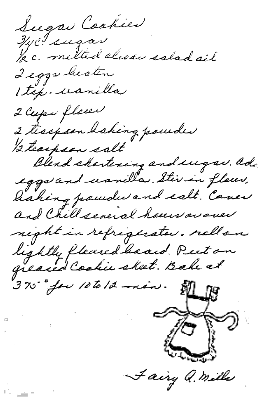 Sugar Cookies
3/4 c. sugar
1/2 c. melted oleo or salad oil
2 eggs beaten
1 tsp. vanilla
2 cups flour
2 teaspoon baking powder
1/2 teaspoon salt
Blend shortening and sugar. Add
eggs and vanilla. Stir in flour,
baking powder and salt. Cover
and chill several hours or over
night in refrigerator. roll on
lightly floured board. Put on
greased cookie sheet. Bake at
375° for 10 to 12 min.
Fairy A. Mills